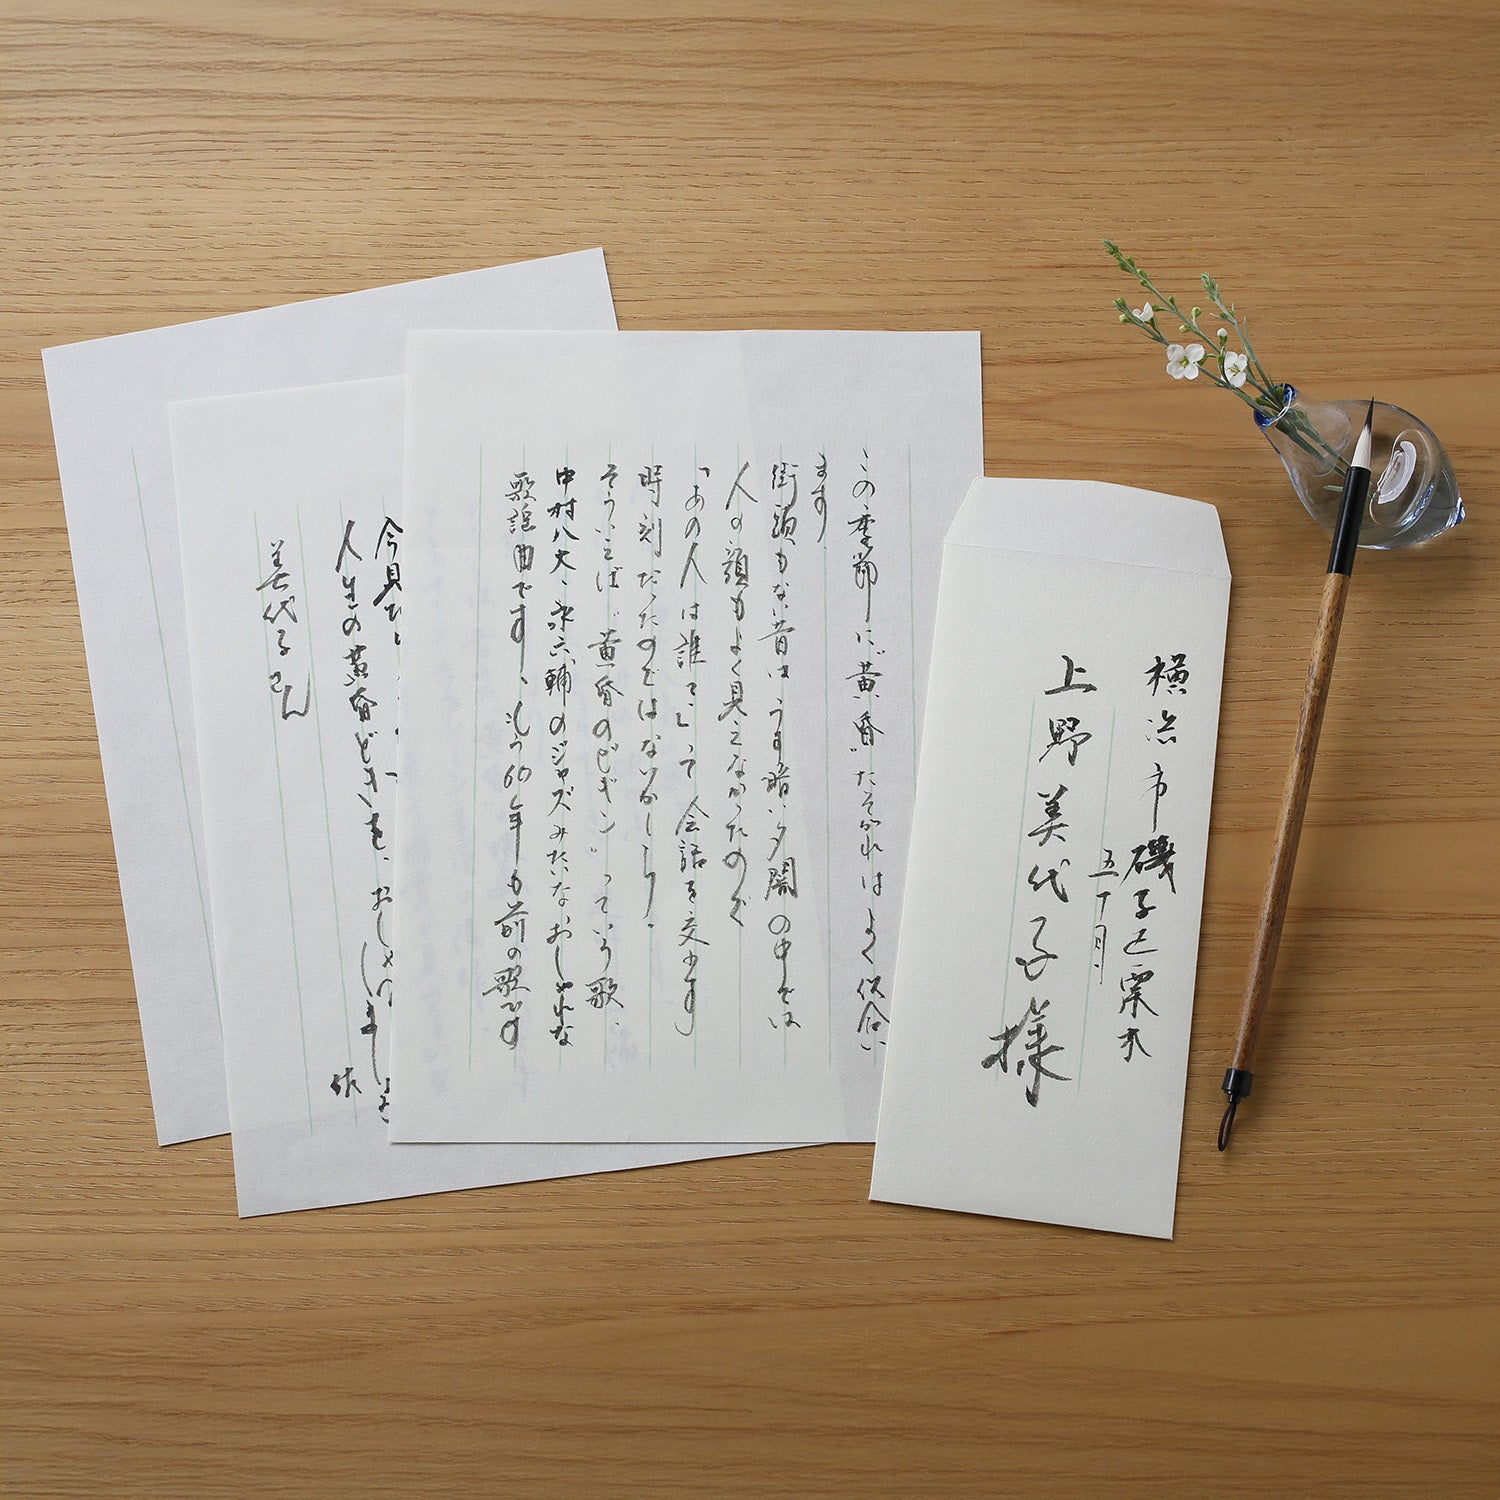 この季節に、“黄昏”たそがれはよく似合い
ます。
街頭もない昔は、うす暗い夕闇の中では
人の顔もよく見えなかったので
「あの人は誰て、」って会話を交わす
時刻だったのではないかしら、
そういえば“黄昏のビギン”っていう歌、
中村八大、永六輔のジャズみたいなおしゃれな
歌謡曲です、もう60年も前の歌です
今見た
人生の黄昏どきを、おし
しましょう
佐
美代子さん
横浜市磯子区栗木
五丁目
上野美代子様